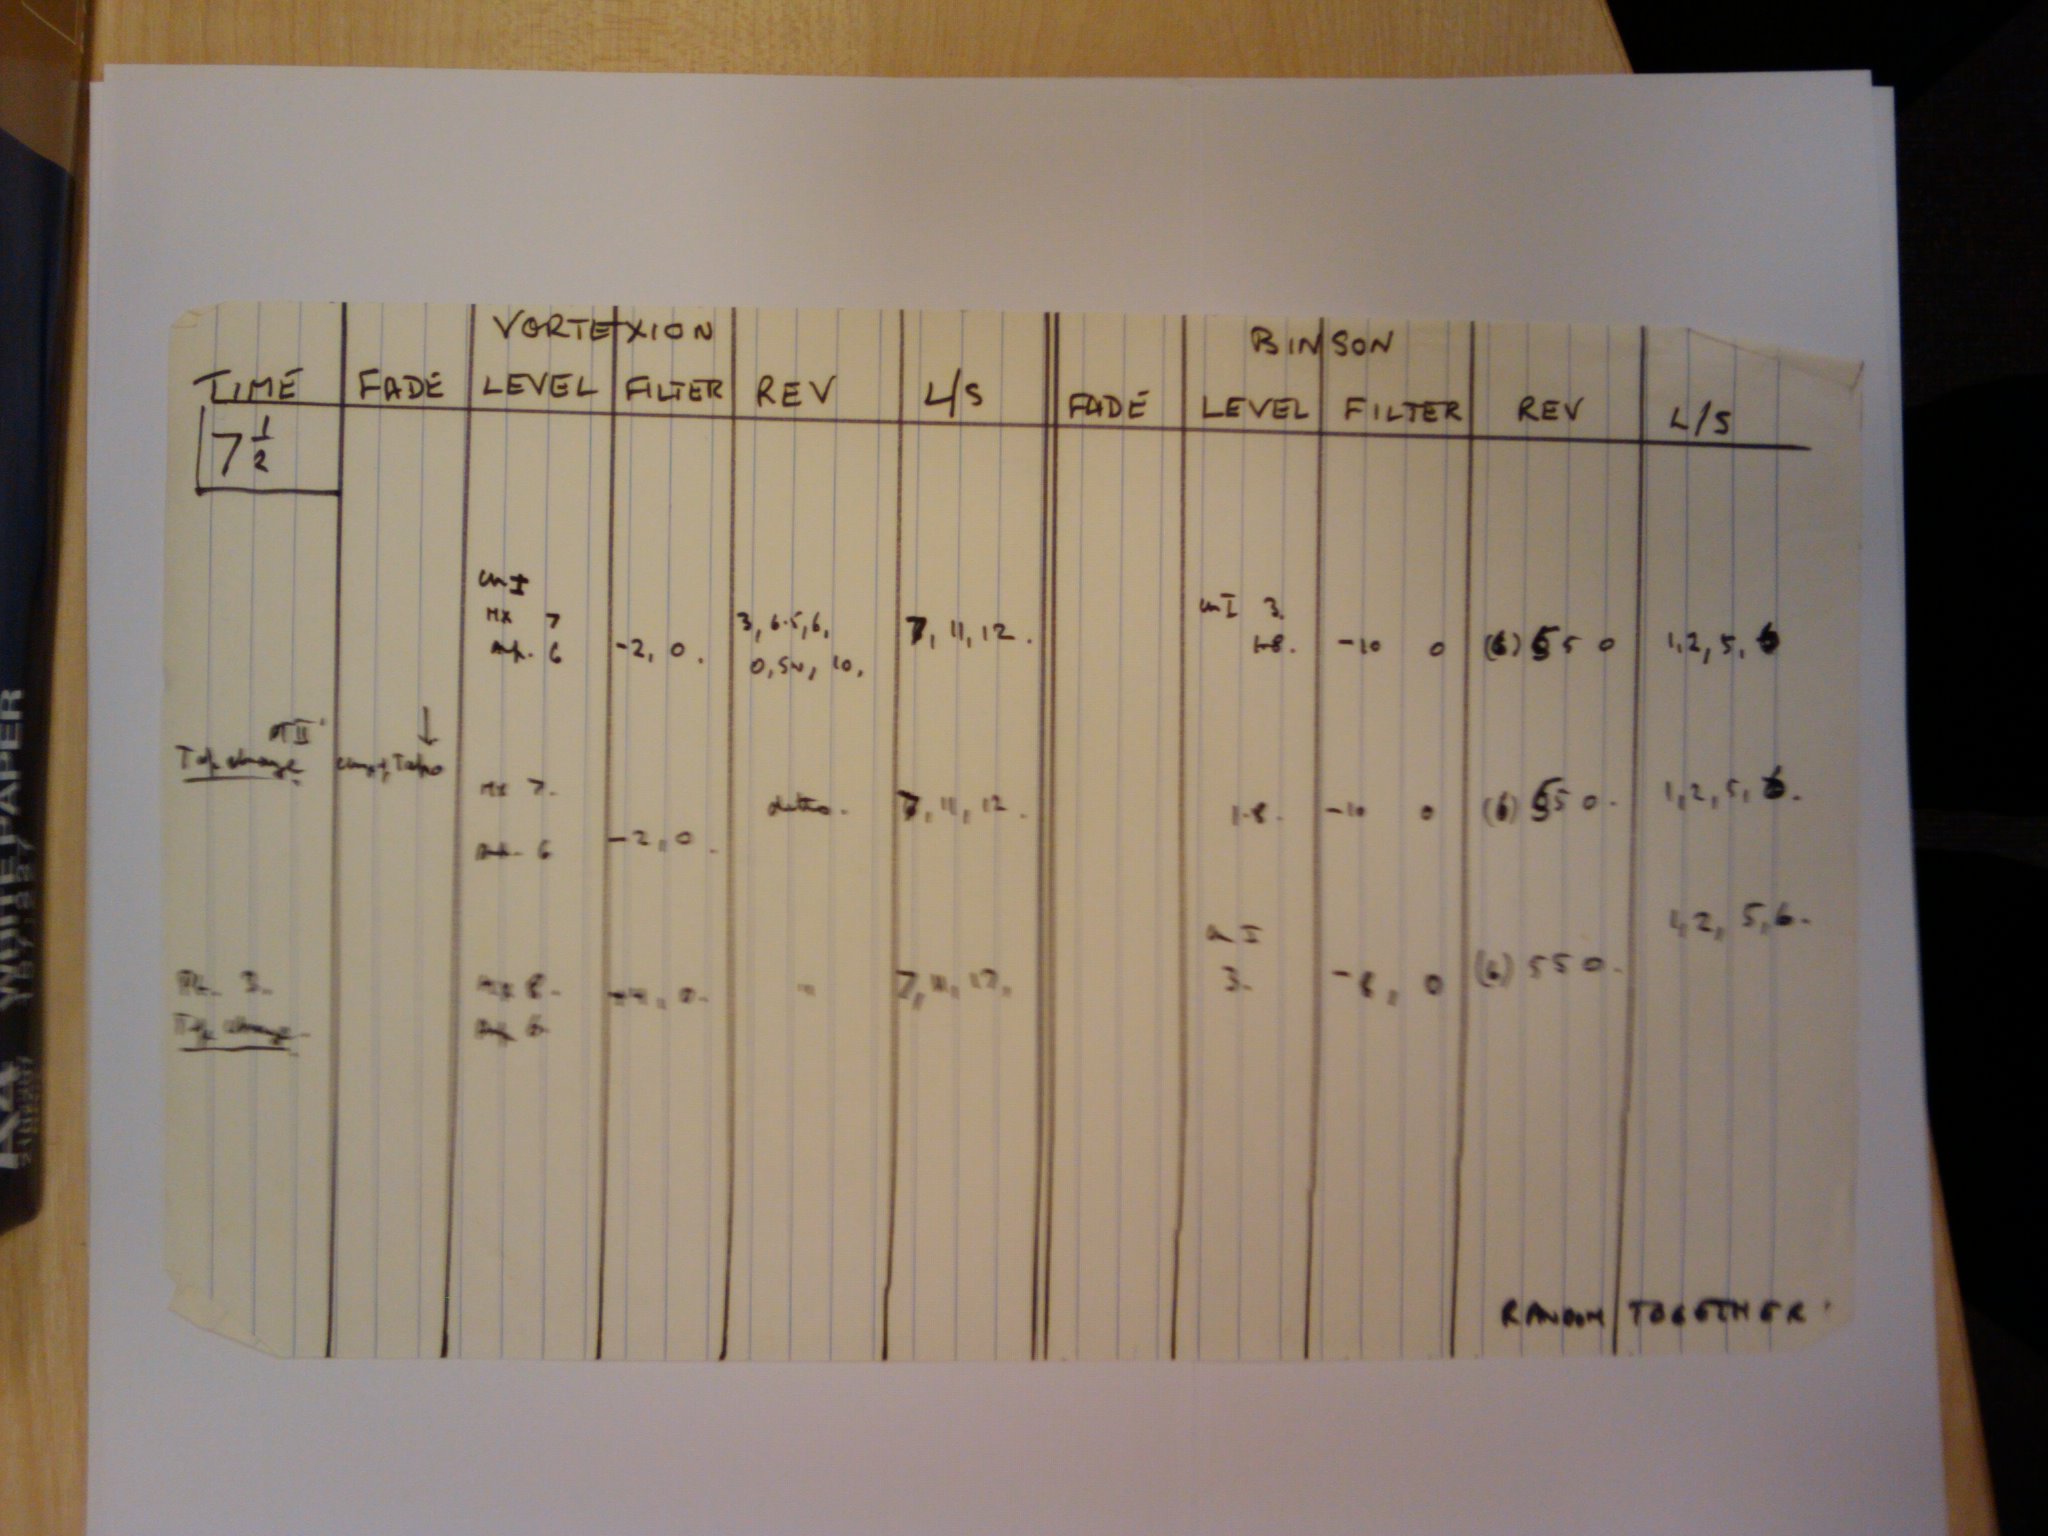 VORTEXION BINSON
TIME FADE LEVEL FILTER REV L/S FADE LEVEL FILTER REV L/S
7 1/2
I I 3.
MX 7 3, 6.5, 6, 7, 11, 12.
6 -2, 0. 0, 10, 1.8. -10 0 (6) 5 5 0 1, 2, 5, 6
II
Tape change
MX 7. ditto. 7, 11, 12. 1.8. -10 0 (6) 5 5 0. 1, 2, 5, 6.
6 -2, 0.
I 1, 2, 5, 6.
3. MX 8. 0. " 7, 11, 12, 3. -8, 0 (6) 5 5 0.
Tape change 6
RANDOM TOGETHER
WHITE PAPER